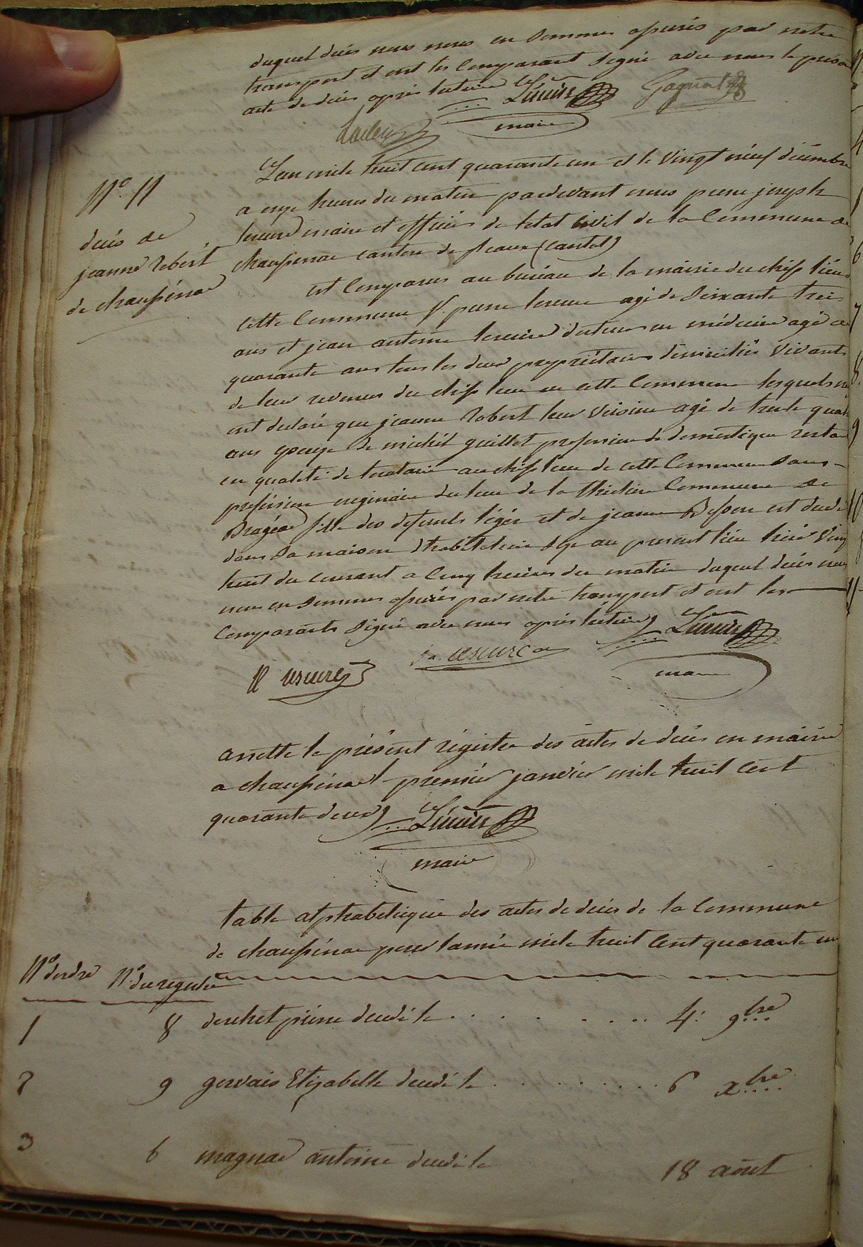 duquel décès nous nous en sommes assurés par notre
transport et ont les comparant signé avec nous le présent
acte de décès après lecture
maire
N° 11
décès de
jeanne robert
de chaussenac
L'an mile huit cent quarante un et le vingt neuf décembre
a onze heures du matin pardevant nous pierre joseph
maire et officier de letat civil de la Commune de
chaussenac canton de pleaux (Cantal)
est Comparus au bureau de la mairie du chef lieu
cette Commune S. pierre agé de Soixante trois
ans et jean antoine docteur en médecine agé de
quarante ans tous les deux propriétaires domiciliés vivants
de leur revenus du chef lieu en cette Commune lesquels
ont déclaré que jeanne robert leur voisine agé de trente quatre
ans épouse de michel guillet profession de domestique
en qualité de au chef lieu de cette Commune sans
profession originaire du lieu de la Commune de
Brageac fille des défunts léger et de jeanne est décédé
dans sa maison d'habitation sise au présent lieu hier vingt
huit du courant a cinq heures du matin duquel décès nous
nous en sommes assurés par notre transport et ont les
Comparants Signé avec nous après lecture
maire
arretté le présent régistre des actes de décès en mairie
a chaussenac l premier janvier mile huit cent
quarante deux
maire
table alphabétique des actes de décès de la Commune
de chaussenac pour l'année mile huit cent quarante un
N° d'ordre N° du régistre
1 8 pierre décédé le 4: 9bre
2 9 gervais Elizabelle décédé le 6 xbre
3 6 magnac antoine décédé le 18 aout